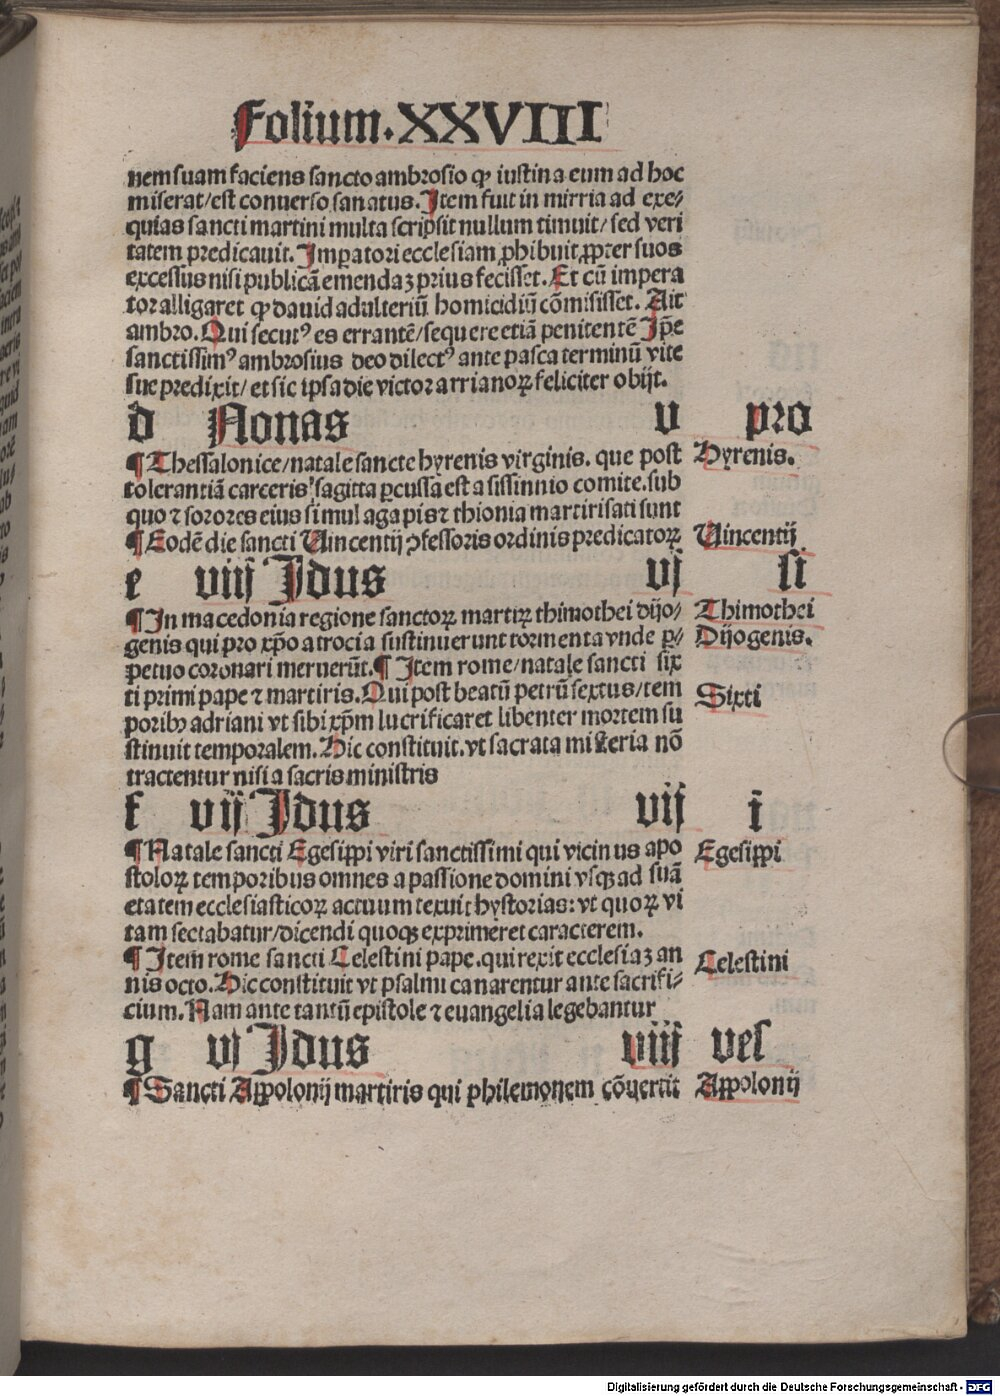 Folium.XXVIII
nem suam faciens sancto ambrosio ꝙ iustina eum ad hoc
miserat/est conuerso sanatus. Item fuit in mirria ad exe⸗
quias sancti martini multa scripsit nullum timuit/ sed veri
tatem predicauit. Imꝑatori ecclesiam ꝓhibuit ꝓpter suos
excessus nisi publicā emendaꝫ prius fecisset. Et cū impera
tor alligaret ꝙ dauid adulteriū homicidiū cōmisisset. Ait
ambro. Qui secutꝰ es errantē/sequere etiā penitentē Ip̄e
sanctissimꝰ ambrosius deo dilectꝰ ante pasca terminū vite
sue predixit/ et sic ipsa die victor arrianoꝝ feliciter obijt.
d Nonas v pro
¶ Thessalonice/natale sancte hyrenis virginis. que post Hyrenis.
tolerantiā carceris sagitta ꝑcussa est a sissinnio comite.sub
quo ⁊ sorores eius simul agapis ⁊ thionia martirisati sunt
¶ Eodē die sancti Uincentij ꝯfessoris ordinis predicatoꝝ Uincentij
e viij Idus vj si
¶ In macedonia regione sanctoꝝ martiꝝ thimothei dijo⸗ Thimothei
genis qui pro xp̄o atrocia sustinuerunt tormenta vnde ꝑ⸗ Dijogenis.
petuo coronari meruerūt. ¶ Item rome/natale sancti six
ti primi pape ⁊ martiris. Qui post beatū petrū sextus/tem Sixti
poribꝫ adriani vt sibi xp̄m lucrificaret libenter mortem su
stinuit temporalem. Hic constituit.vt sacrata misteria nō
tractentur nisi a sacris ministris
f vij Idus vij i
¶ Natale sancti Egesippi viri sanctissimi qui vicinus apo Egesippi
stoloꝝ temporibus omnes a passione domini vsqꝫ ad suā
etatem ecclesiasticoꝝ actuum texuit hystorias: vt quoꝝ vi
tam sectabatur/dicendi quoqꝫ exprimeret caracterem.
¶ Item rome sancti Celestini pape.qui rexit ecclesiaꝫ an Celestini
nis octo. Hic constituit vt psalmi canarentur ante sacrifi⸗
cium. Nam ante tantū epistole ⁊ euangelia legebantur
g vj Idus viij vel
¶ Sancti Appolonij martiris qui philemonem cōuertit Appolonij
Digitalisierung gefördert durch die Deutsche Forschungsgemeinschaft - DFG